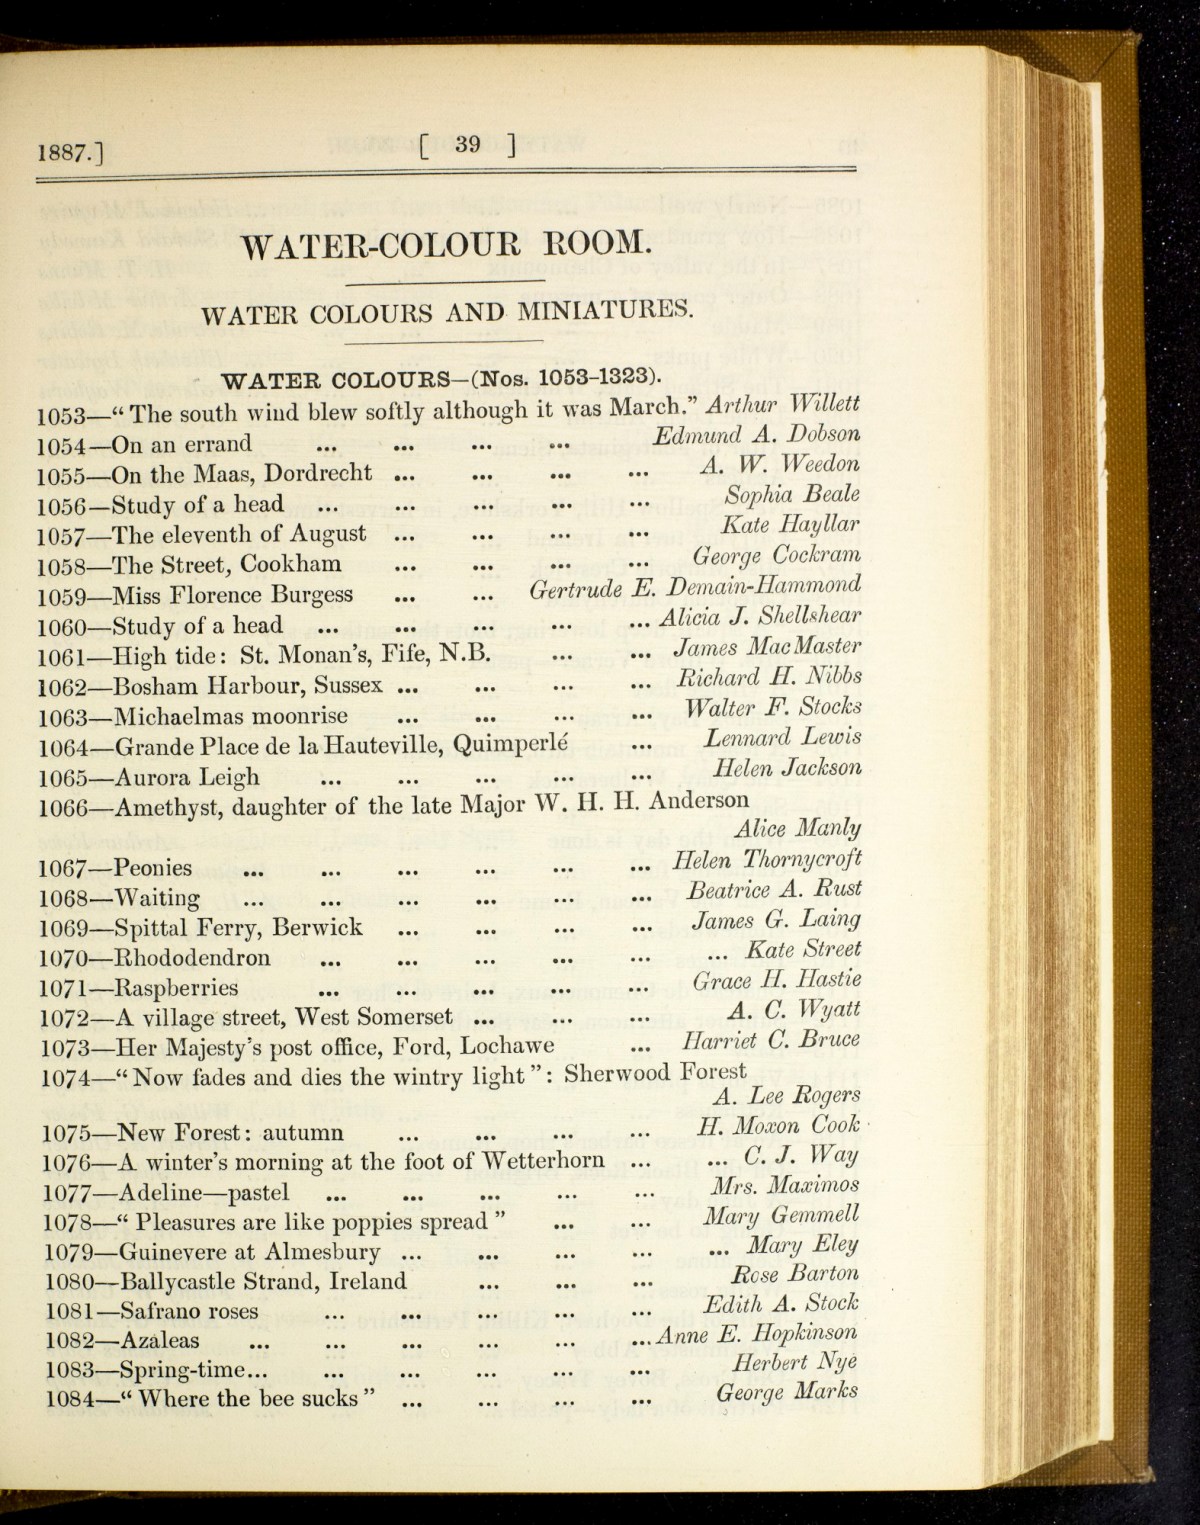 1887.] [ 39 ]
WATER-COLOUR ROOM.
WATER COLOURS AND MINIATURES.
WATER COLOURS—(Nos. 1053-1323).
1053—“ The south wind blew softly although it was March.” Arthur Willett
1054—On an errand ... ... ... ... Edmund A. Dobson
1055—On the Maas, Dordrecht ... ... ... ... A. W. Weedon
1056—Study of a head ... ... ... ... ... Sophia Beale
1057—The eleventh of August ... ... ... ... Kate Hayllar
1058—The Street, Cookham ... ... ... ... George Cockram
1059—Miss Florence Burgess ... ... Gertrude E. Demain-Hammond
1060—Study of a head ... ... ... ... ... Alicia J. Shellshear
1061—High tide: St. Monan’s, Fife, N.B. ... ... James MacMaster
1062—Bosham Harbour, Sussex ... ... ... ... Richard H. Nibbs
1063—Michaelmas moonrise ... ... ... ... Walter F. Stocks
1064—Grande Place de la Hauteville, Quimperlé ... Lennard Lewis
1065—Aurora Leigh ... ... ... ... ... Helen Jackson
1066—Amethyst, daughter of the late Major W. H. H. Anderson
Alice Manly
1067—Peonies ... ... ... ... ... ... Helen Thornycroft
1068—Waiting ... ... ... ... ... ... Beatrice A. Rust
1069—Spittal Ferry, Berwick ... ... ... ... James G. Laing
1070—Rhododendron ... ... ... ... ... ... Kate Street
1071—Raspberries ... ... ... ... ... Grace H. Hastie
1072—A village street, West Somerset ... ... ... A. C. Wyatt
1073—Her Majesty’s post office, Ford, Lochawe ... Harriet C. Bruce
1074—“ Now fades and dies the wintry light ” : Sherwood Forest
A. Lee Rogers
1075—New Forest: autumn ... ... ... ... H. Moxon Cook
1076—A winter’s morning at the foot of Wetterhorn ... ... C. J. Way
1077—Adeline—pastel ... ... ... ... ... Mrs. Maximos
1078—“ Pleasures are like poppies spread ” ... ... Mary Gemmell
1079—Guinevere at Almesbury ... ... ... ... ... Mary Eley
1080—Ballycastle Strand, Ireland ... ... ... Rose Barton
1081—Safrano roses ... ... ... ... ... Edith A. Stock
1082—Azaleas ... ... ... ... ... ... Anne E. Hopkinson
1083—Spring-time... ... ... ... ... ... Herbert Nye
1084—“ Where the bee sucks ” ... ... ... ... George Marks